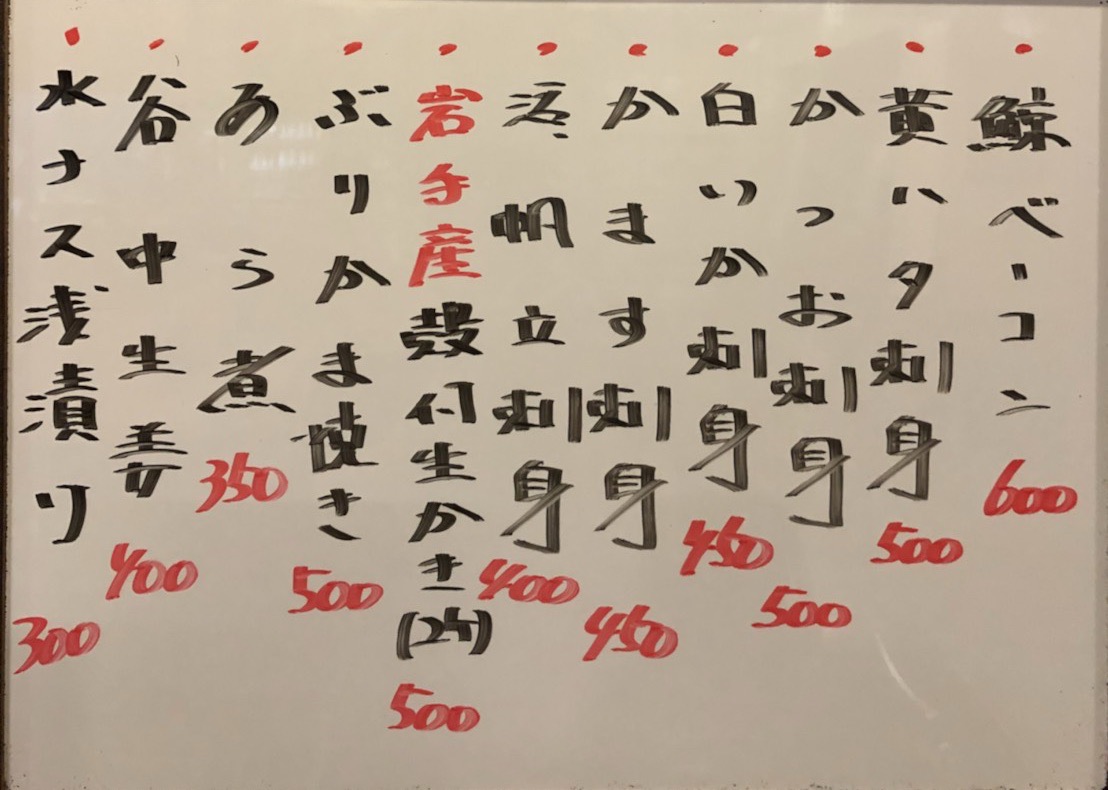 鯨ベーコン 600
黄ハタ刺身 500
かつお刺身 500
白いか刺身 450
かます刺身 450
活帆立刺身 400
岩手産殻付生かき(2ヶ) 500
ぶりかま焼き 500
あら煮 350
谷中生姜 400
水ナス浅漬り 300